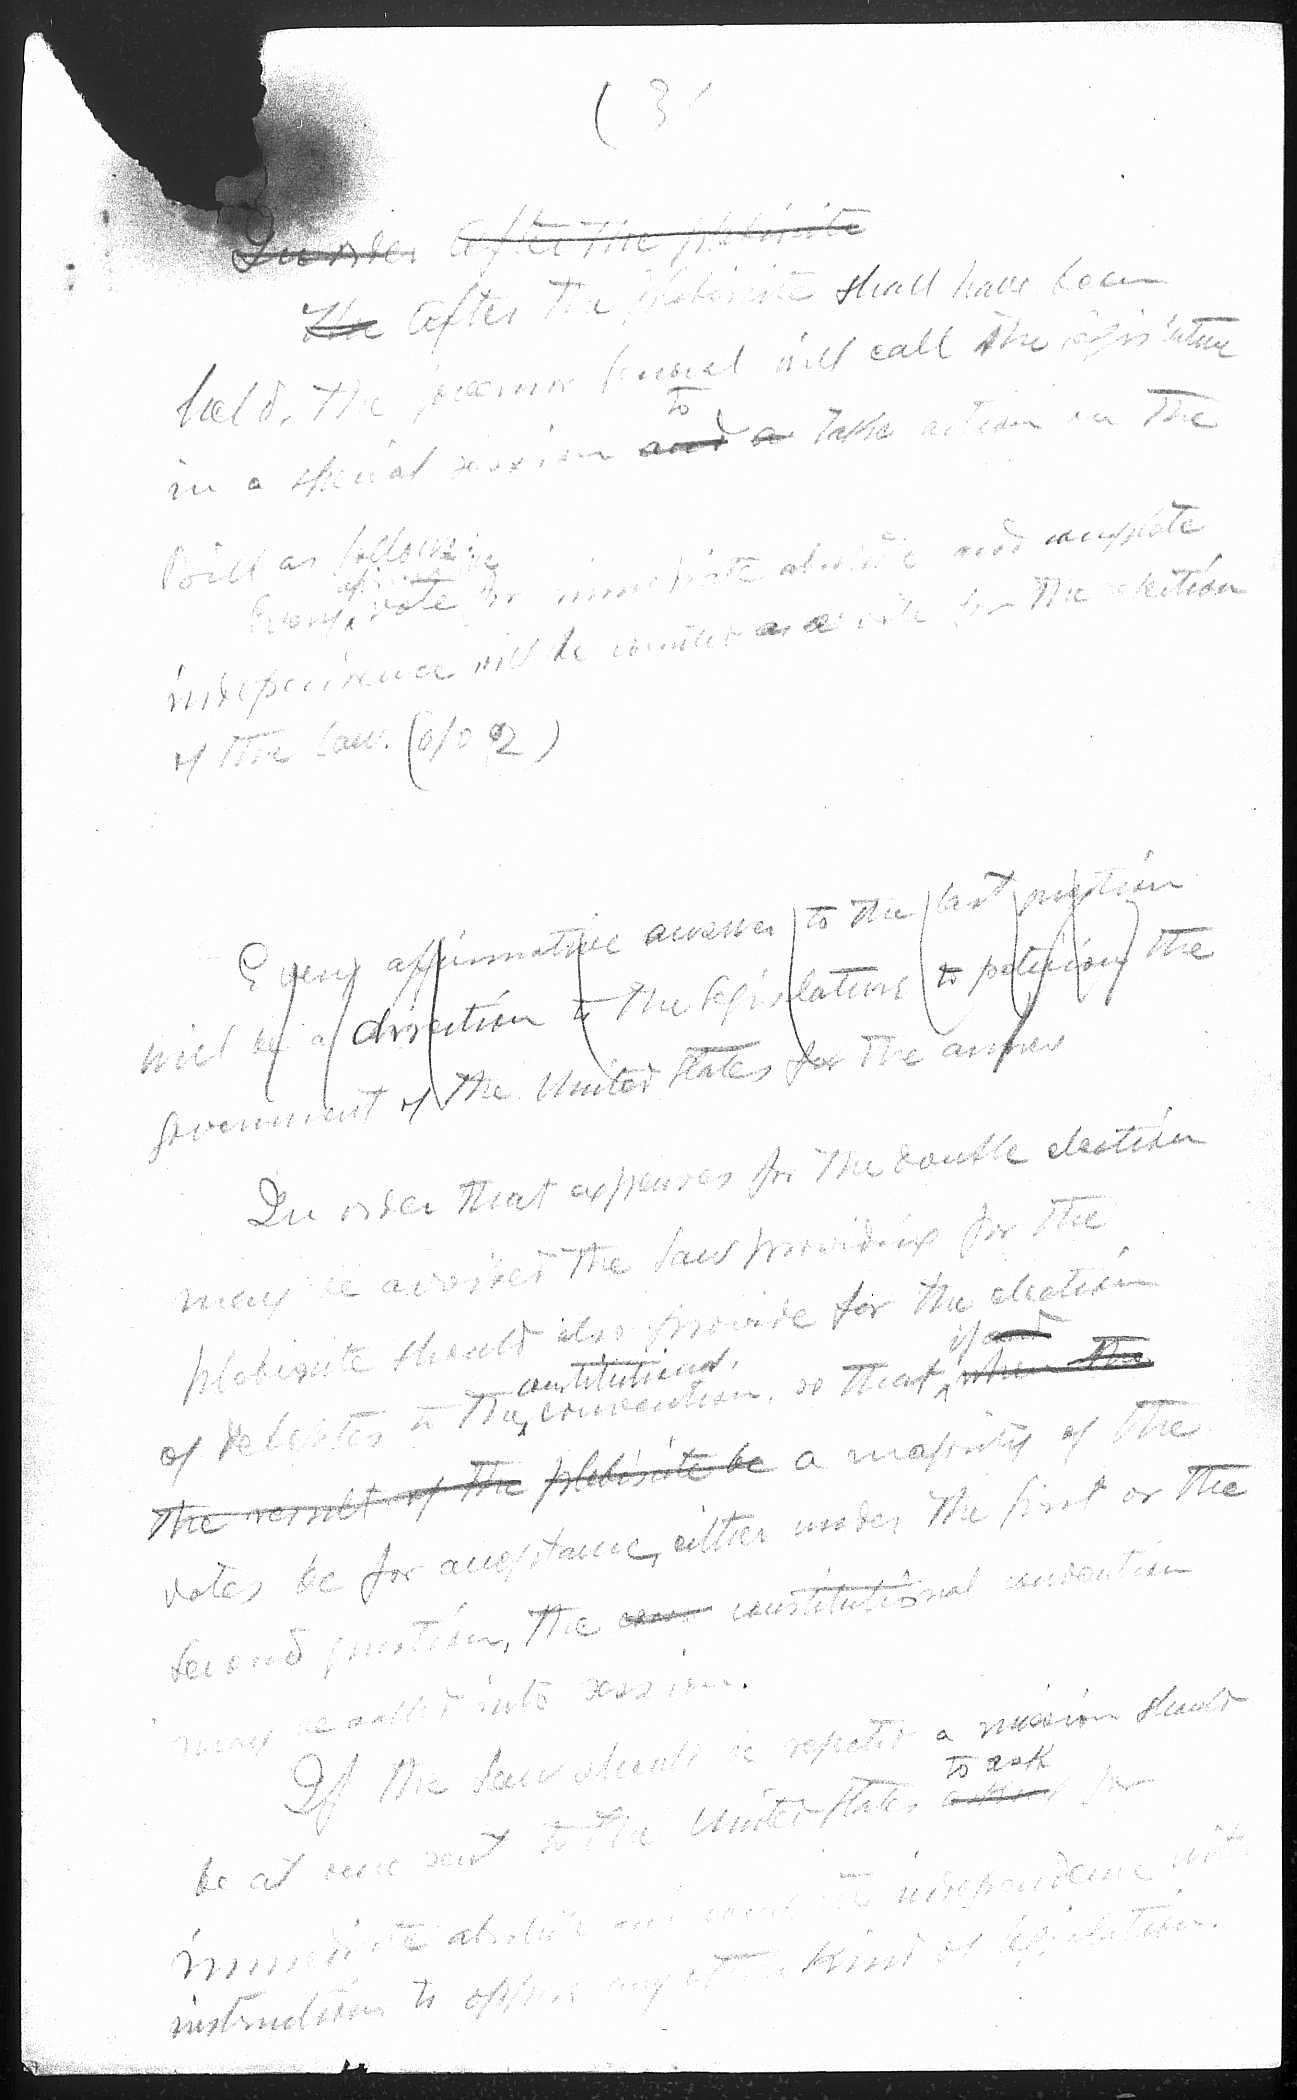 (3)
In order After the plebiscite
The After the plebiscite shall have been
held, the governor general will call the legislature
in a special session and a to take action on the
bill as follows:
Every affirmative vote for immediate absolute and complete
independence will be counted as a vote for the election
of the law. (o/o 2)
Every affirmative answer to the last question
will be a direction to the legislature to petition the
government of the United States for the annex
In order that expenses for the double election
may be avoided the law providing for the
plebiscite should also provide for the election
of delegates to the constitutional convention, so that if and when the
the result of the plebiscite be a majority of the
votes be for acceptance, either under the first or the
second question, the cons constitutional convention
may be called into session.
If the law should be rejected a mission should
be at once sent to the United States to ask for
immediate absolute and complete independence with
instructions to oppose any other kind of legislation.